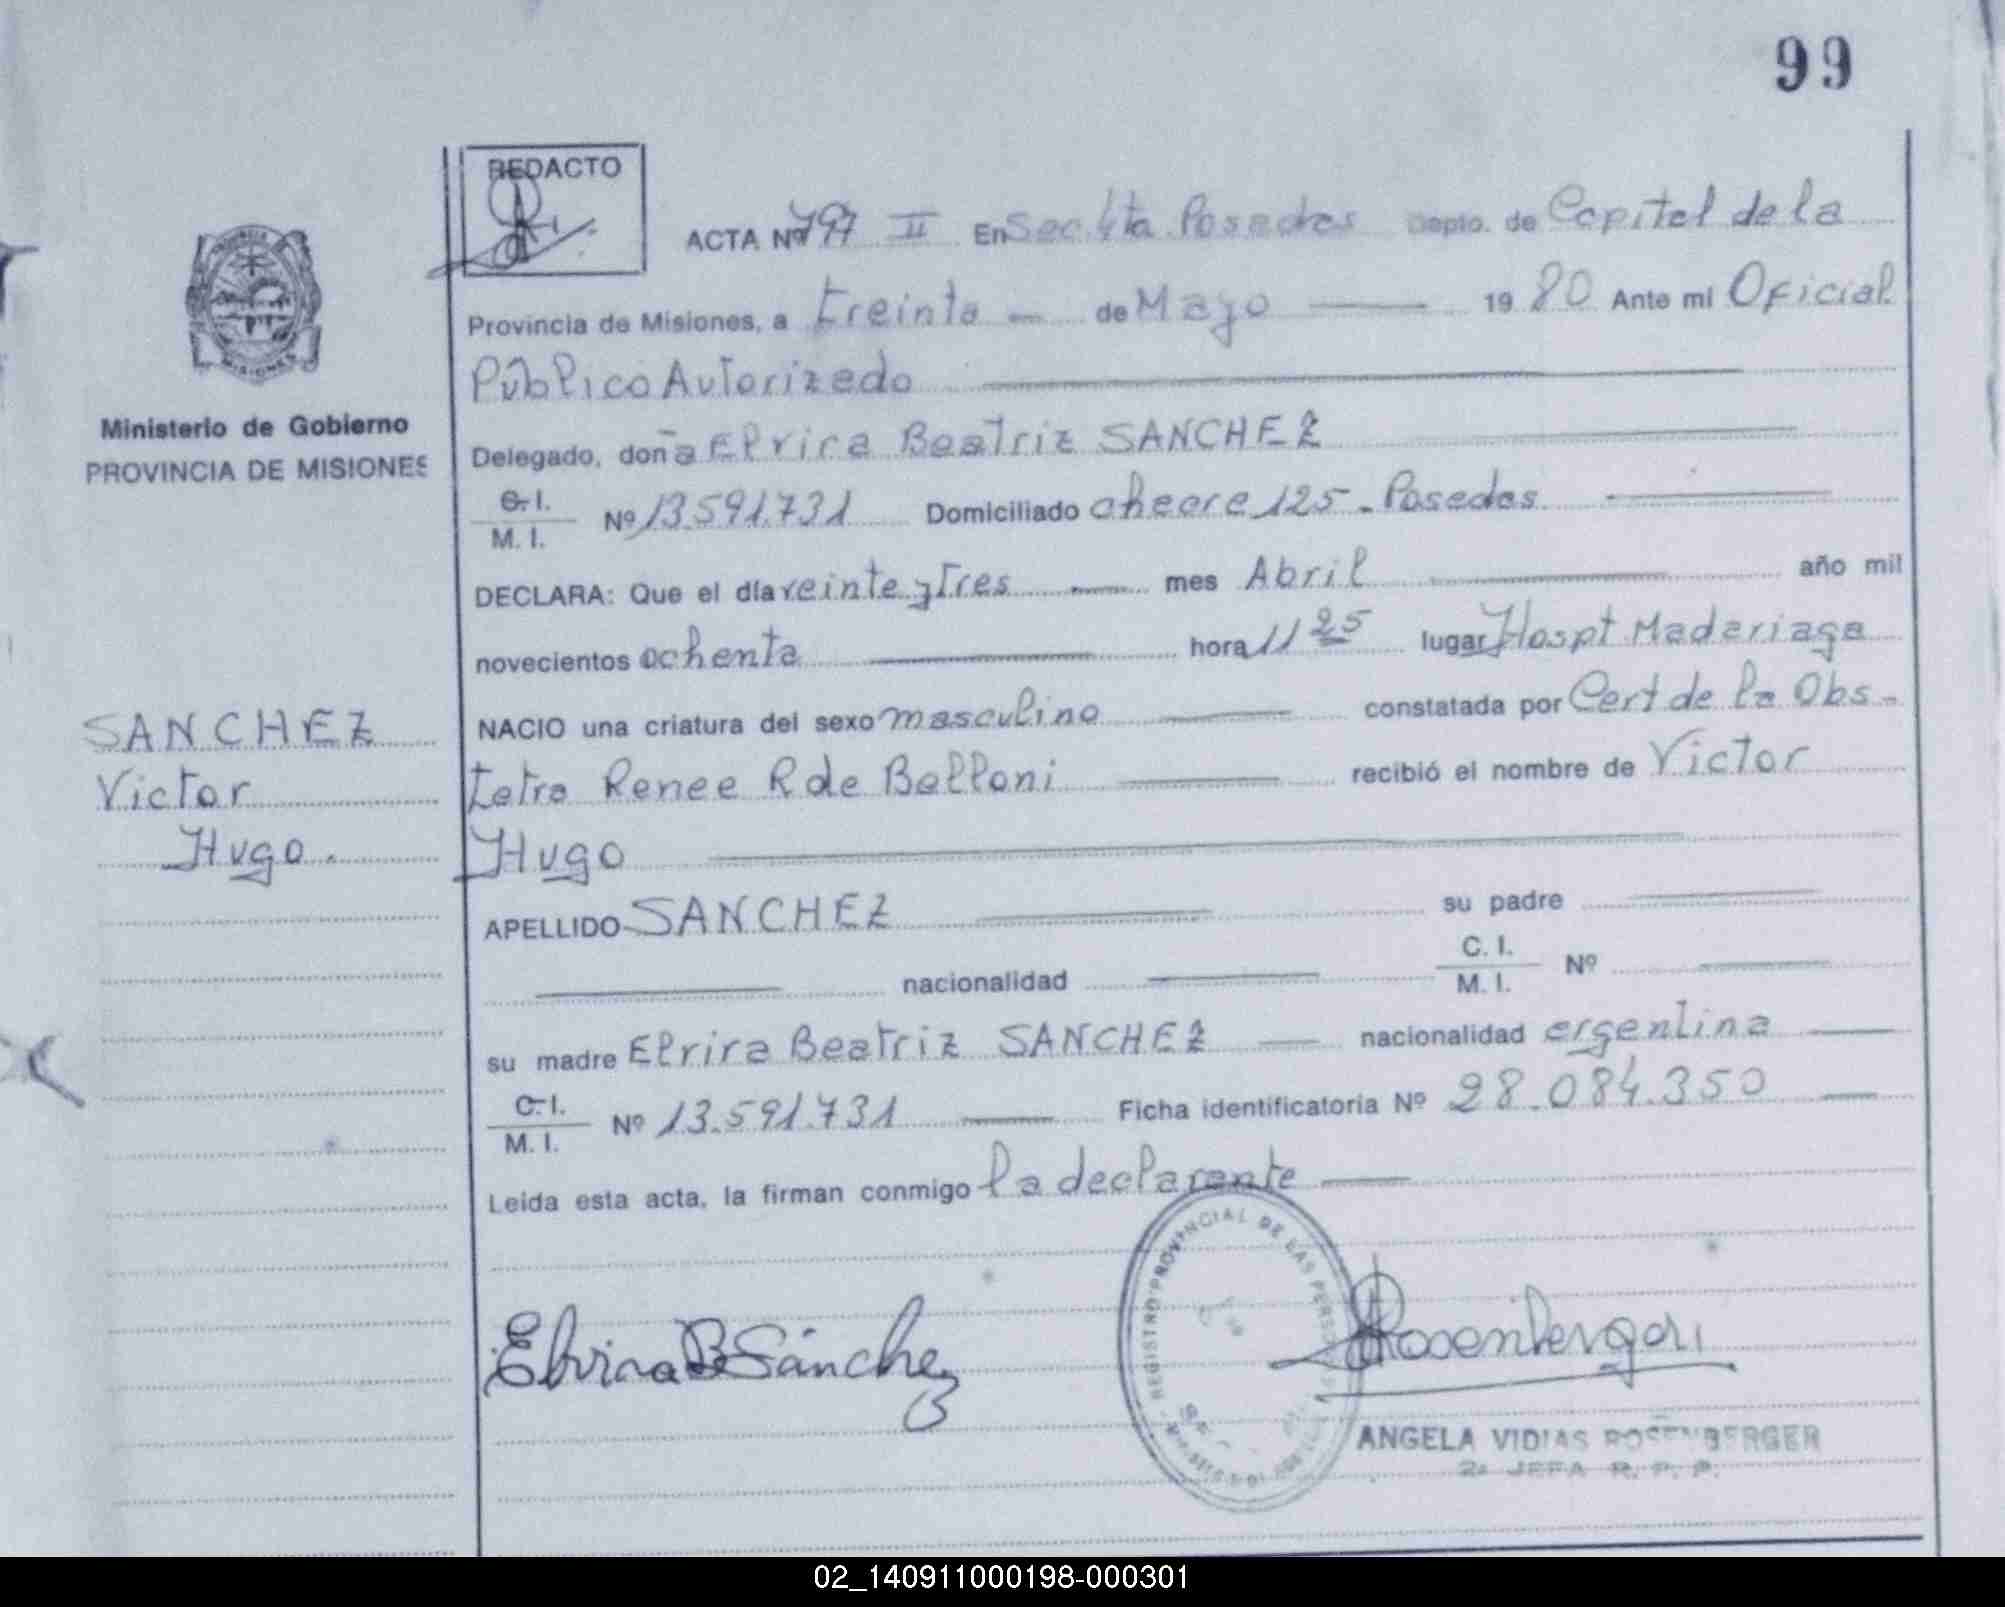 99
REDACTO
ACTA Nº 797 II En Sec 4ta Posadas Depto. de Capital de la
Provincia de Misiones, a treinta de Mayo 19 80 Ante mi Oficial
Público Autorizado
Ministerio de Gobierno
PROVINCIA DE MISIONES
Delegado, doña Elvira Beatriz SANCHEZ
C. I.
M. I. Nº 13.591.731 Domiciliado chacra 125 - Posadas
DECLARA: Que el día veinte y Tres mes Abril año mil
novecientos ochenta hora 11 25 lugar Hospt. Madariaga
SANCHEZ
Victor
Hugo.
NACIO una criatura del sexo masculino constatada por Cert de la Obs-
tetra Renee R de Belloni recibió el nombre de Victor
Hugo
APELLIDO SANCHEZ su padre
nacionalidad C. I.
M. I. Nº
su madre Elvira Beatriz SANCHEZ nacionalidad argentina
C. I.
M. I. Nº 13.591.731 Ficha identificatoria Nº 28.084.350
Leida esta acta, la firman conmigo la declarante
REGISTRO PROVINCIAL DE LAS PERSONAS
Elvira B Sánchez
Rosenberger
ANGELA VIDIAS ROSENBERGER
2a JEFA R. P. P.
02_140911000198-000301